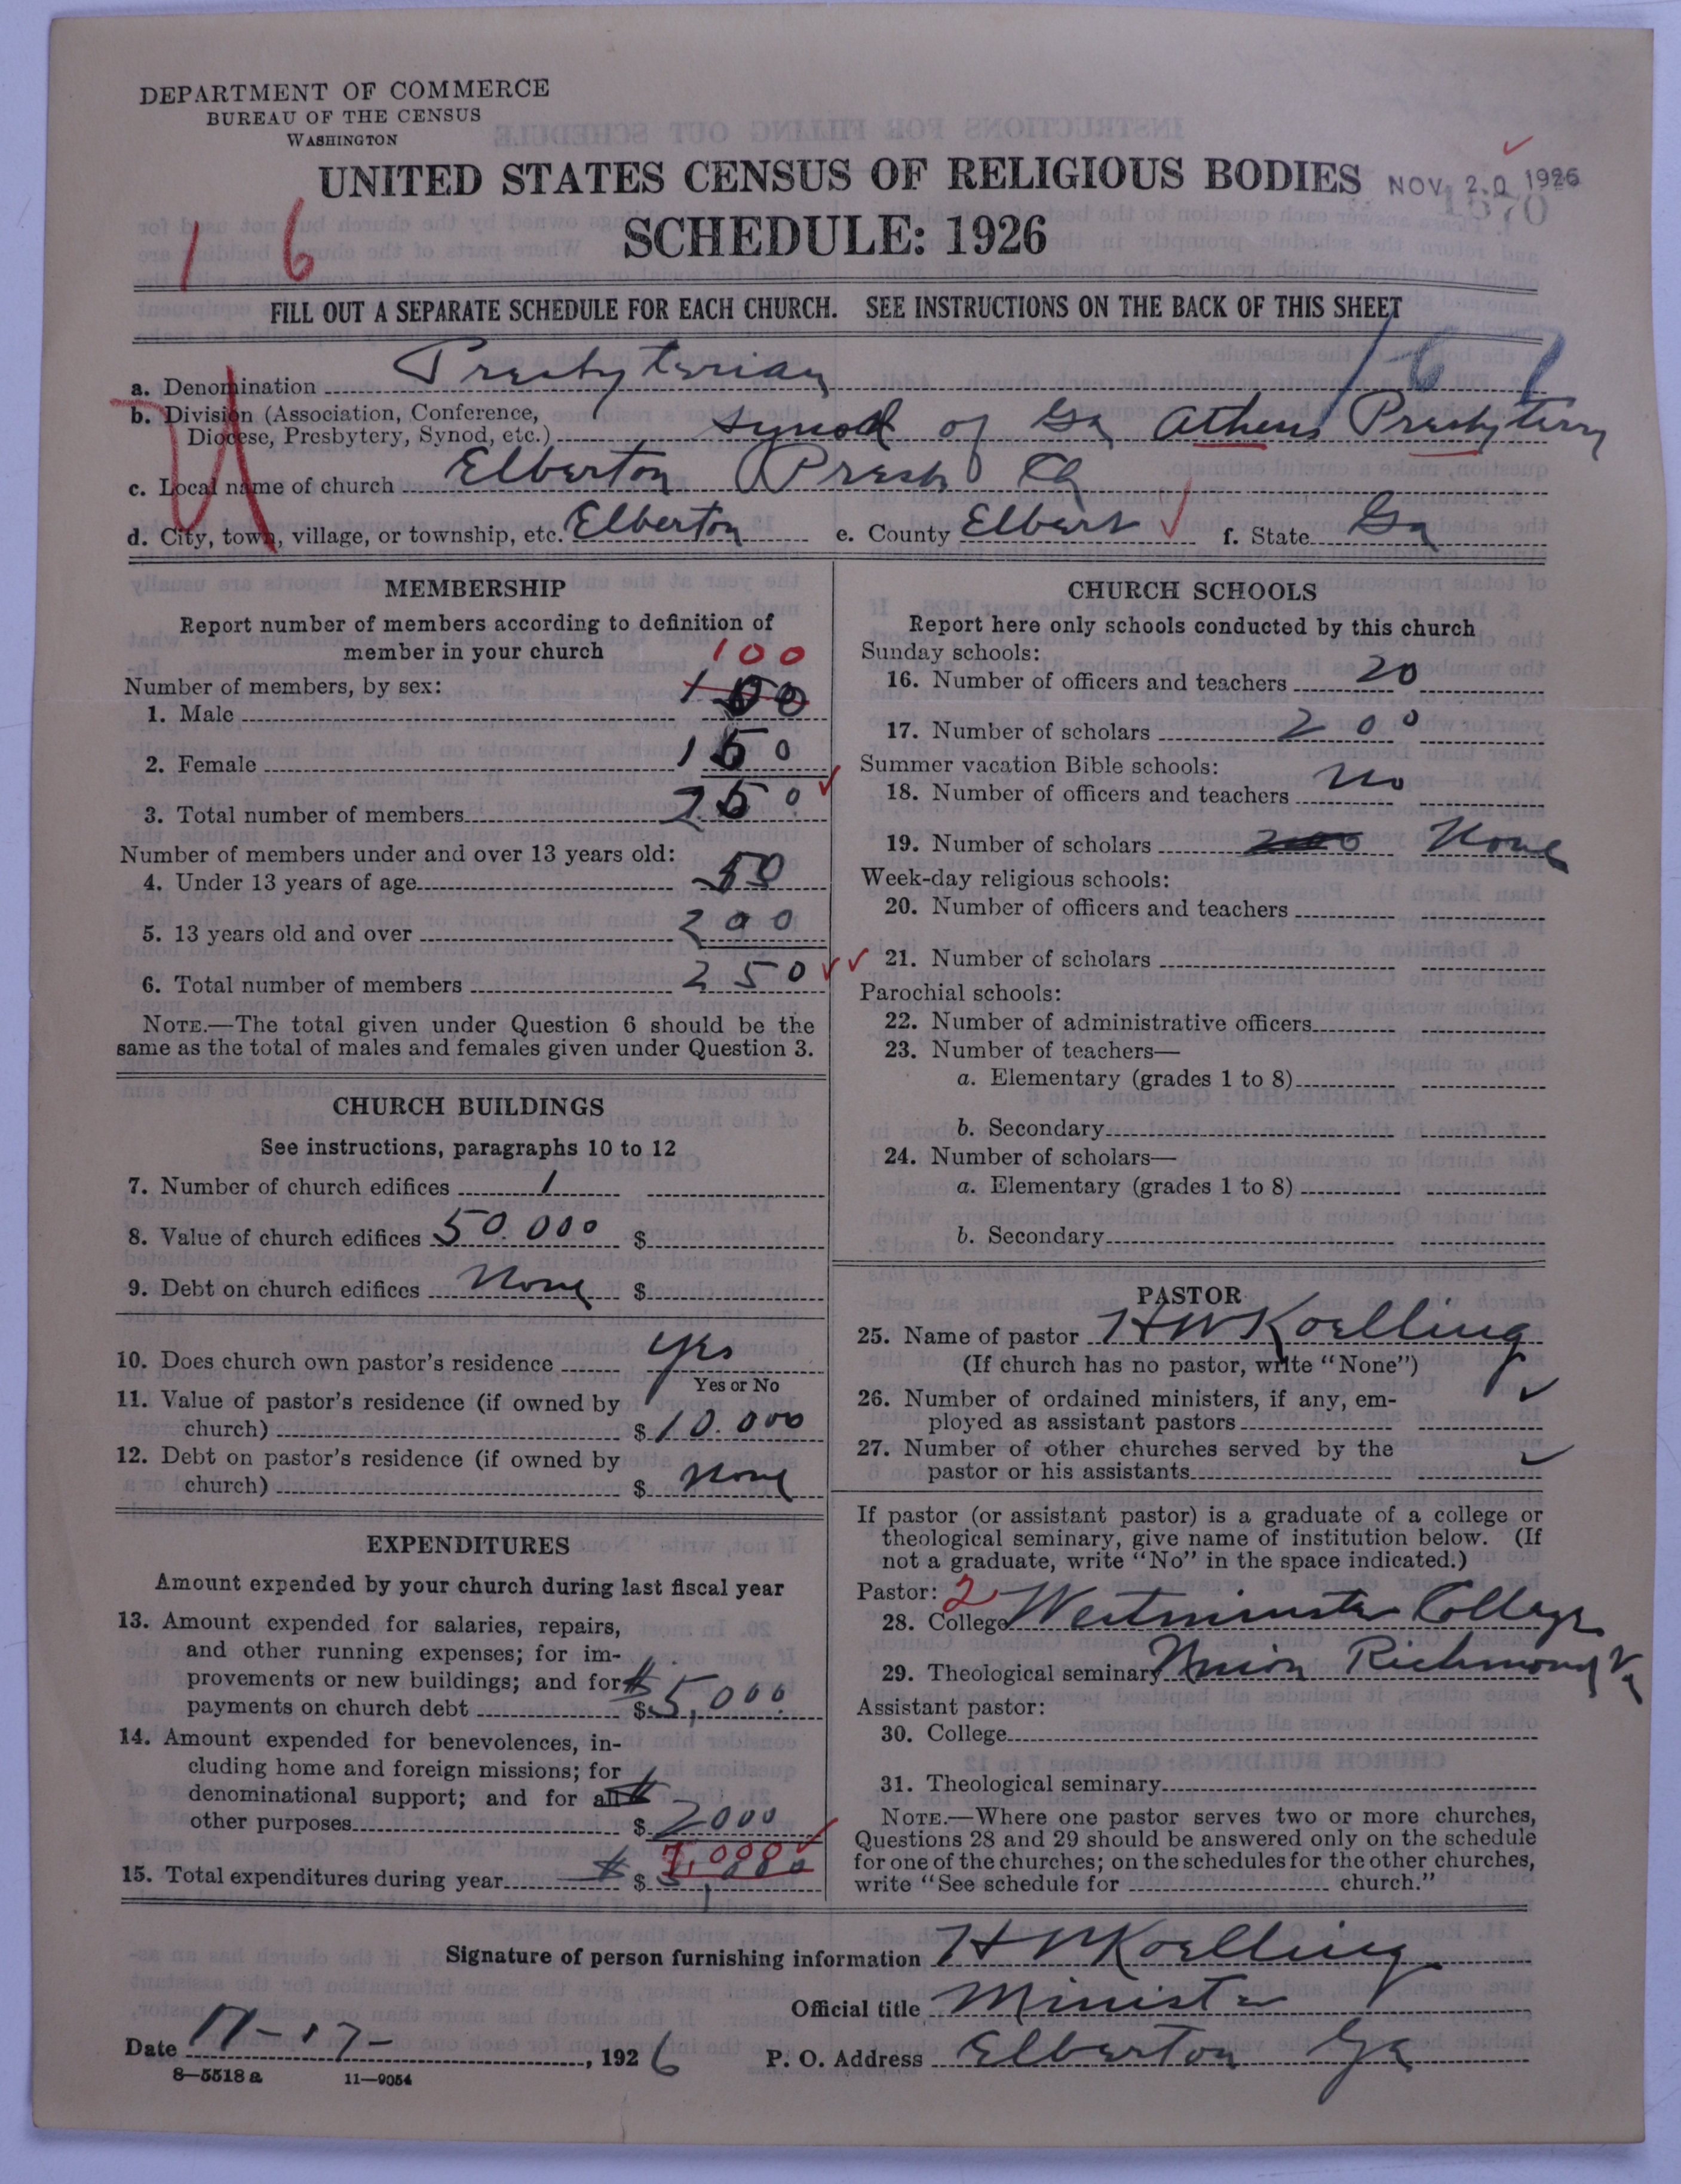 DEPARTMENT OF COMMERCE
BUREAU OF THE CENSUS
WASHINGTON
UNITED STATES CENSUS OF RELIGIOUS BODIES
NOV 20 1926
SCHEDULE: 1926
1 6
FILL OUT A SEPARATE SCHEDULE FOR EACH CHURCH. SEE INSTRUCTIONS ON THE BACK OF THIS SHEET
a. Denomination Presbyterian 167
b. Division (Association, Conference,
Diocese, Presbytery, Synod, etc.) Synod of Ga Athens Presbytery
c. Local name of church Elberton Presb Ch
d. City, town, village, or township, etc. Elberton e. County Elbert f. State Ga
MEMBERSHIP
Report number of members according to definition of
member in your church
100
Number of members, by sex:
1. Male 100
2. Female 150
3. Total number of members 250
Number of members under and over 13 years old:
4. Under 13 years of age 50
5. 13 years old and over 200
6. Total number of members 250
NOTE.—The total given under Question 6 should be the
same as the total of males and females given under Question 3.
CHURCH BUILDINGS
See instructions, paragraphs 10 to 12
7. Number of church edifices 1
8. Value of church edifices 50.000 $
9. Debt on church edifices None $
10. Does church own pastor's residence Yes
Yes or No
11. Value of pastor's residence (if owned by
church) $ 10.000
12. Debt on pastor's residence (if owned by
church) $ None
EXPENDITURES
Amount expended by your church during last fiscal year
13. Amount expended for salaries, repairs,
and other running expenses; for im-
provements or new buildings; and for $
payments on church debt $ 5,000
14. Amount expended for benevolences, in-
cluding home and foreign missions; for
denominational support; and for all $
other purposes $ 2000
7,000
15. Total expenditures during year $ $
CHURCH SCHOOLS
Report here only schools conducted by this church
Sunday schools:
16. Number of officers and teachers 20
17. Number of scholars 200
Summer vacation Bible schools:
18. Number of officers and teachers No
19. Number of scholars 200 None
Week-day religious schools:
20. Number of officers and teachers
21. Number of scholars
Parochial schools:
22. Number of administrative officers
23. Number of teachers—
a. Elementary (grades 1 to 8)
b. Secondary
24. Number of scholars—
a. Elementary (grades 1 to 8)
b. Secondary
PASTOR
25. Name of pastor H W Koelling
(If church has no pastor, write "None")
26. Number of ordained ministers, if any, em-
ployed as assistant pastors
27. Number of other churches served by the
pastor or his assistants
If pastor (or assistant pastor) is a graduate of a college or
theological seminary, give name of institution below. (If
not a graduate, write "No" in the space indicated.)
Pastor: 2
28. College Westminster College
29. Theological seminary Union Richmond Va
Assistant pastor:
30. College
31. Theological seminary
NOTE.—Where one pastor serves two or more churches,
Questions 28 and 29 should be answered only on the schedule
for one of the churches; on the schedules for the other churches,
write "See schedule for church."
Signature of person furnishing information H W Koelling
Official title Minister
Date 11-17-, 1926 P. O. Address Elberton Ga
8—5518 a 11—9054